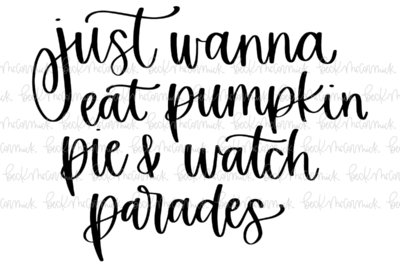 just wanna
eat pumpkin
pie & watch
parades